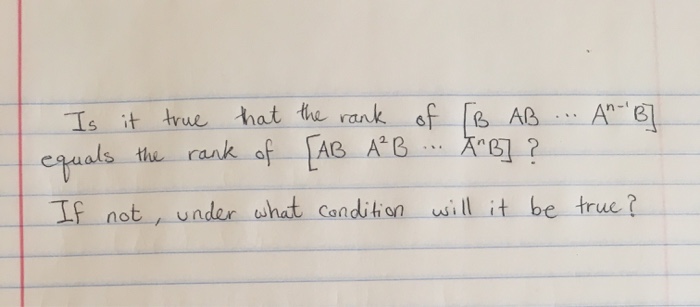 Is it true that the rank of [B AB ... Aⁿ⁻¹B]
equals the rank of [AB A²B ... AⁿB] ?
If not, under what condition will it be true?